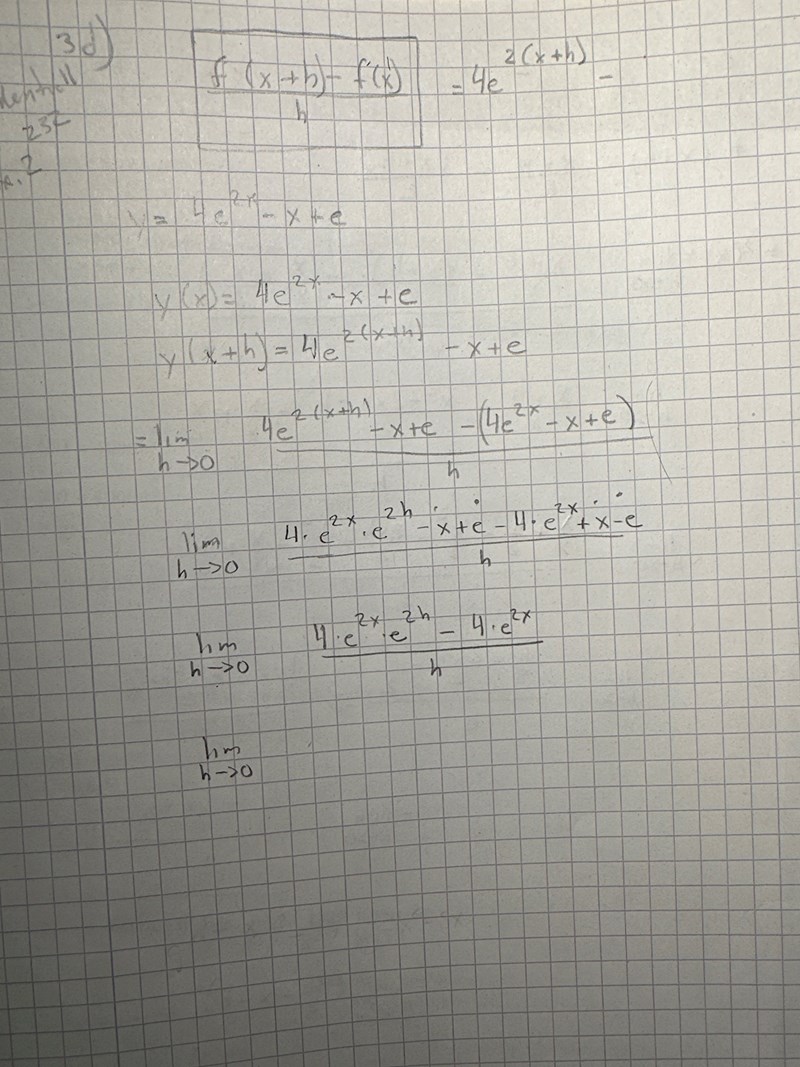 3d)
f(x+h) - f(x) / h = 4e^2(x+h) -
23
2
y = 4e^2x - x + e
y(x) = 4e^2x - x + e
y(x+h) = 4e^2(x+h) - x + e
= lim h→0 4e^2(x+h) - x + e - (4e^2x - x + e) / h
lim h→0 4·e^2x·e^2h - x + e - 4·e^2x + x - e / h
lim h→0 4·e^2x·e^2h - 4·e^2x / h
lim h→0